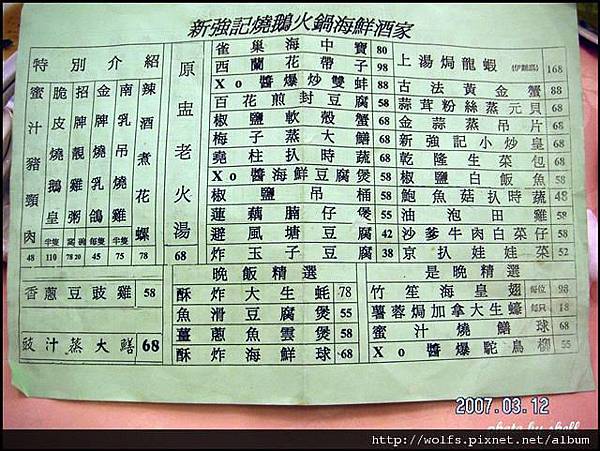 新強記燒鵝火鍋海鮮酒家
特別介紹
蜜汁豬頸肉 48
脆皮燒鵝皇 半隻 110
招牌靚粥 窩 碗 78 20
金牌乳鴿 每隻 45
南乳吊燒雞 半隻 75
辣酒煮花螺 78
原盅老火湯 68
香蔥豆豉雞 58
豉汁蒸大鱔 68
雀巢海中寶 80
西蘭花帶子 98
Xo醬爆炒雙蚌 88
百花煎封豆腐 58
椒鹽軟殼蟹 68
梅子蒸大鱔 68
堯柱扒時蔬 68
Xo醬海鮮豆腐煲 58
椒鹽吊桶 58
蓮藕腩仔煲 55
避風塘豆腐 42
炸玉子豆腐 38
上湯焗龍蝦 (伊麵底) 168
古法黃金蟹 88
蒜茸粉絲蒸元貝 68
金蒜蒸吊片 68
新強記小炒皇 68
乾隆生菜包 68
椒鹽白飯魚 58
鮑魚菇扒時蔬 48
油泡田雞 58
沙爹牛肉白菜仔 58
京扒娃娃菜 52
晚飯精選
酥炸大生蚝 78
魚滑豆腐煲 55
薑蔥魚雲煲 55
酥炸海鮮球 68
是晚精選
竹笙海皇翅 每位 98
薯蓉焗加拿大生蠔 每只 18
蜜汁燒鱔球 68
Xo醬爆駝鳥柳 55
2007.03.12
photo by shell
http://wolfs.pixnet.net/album